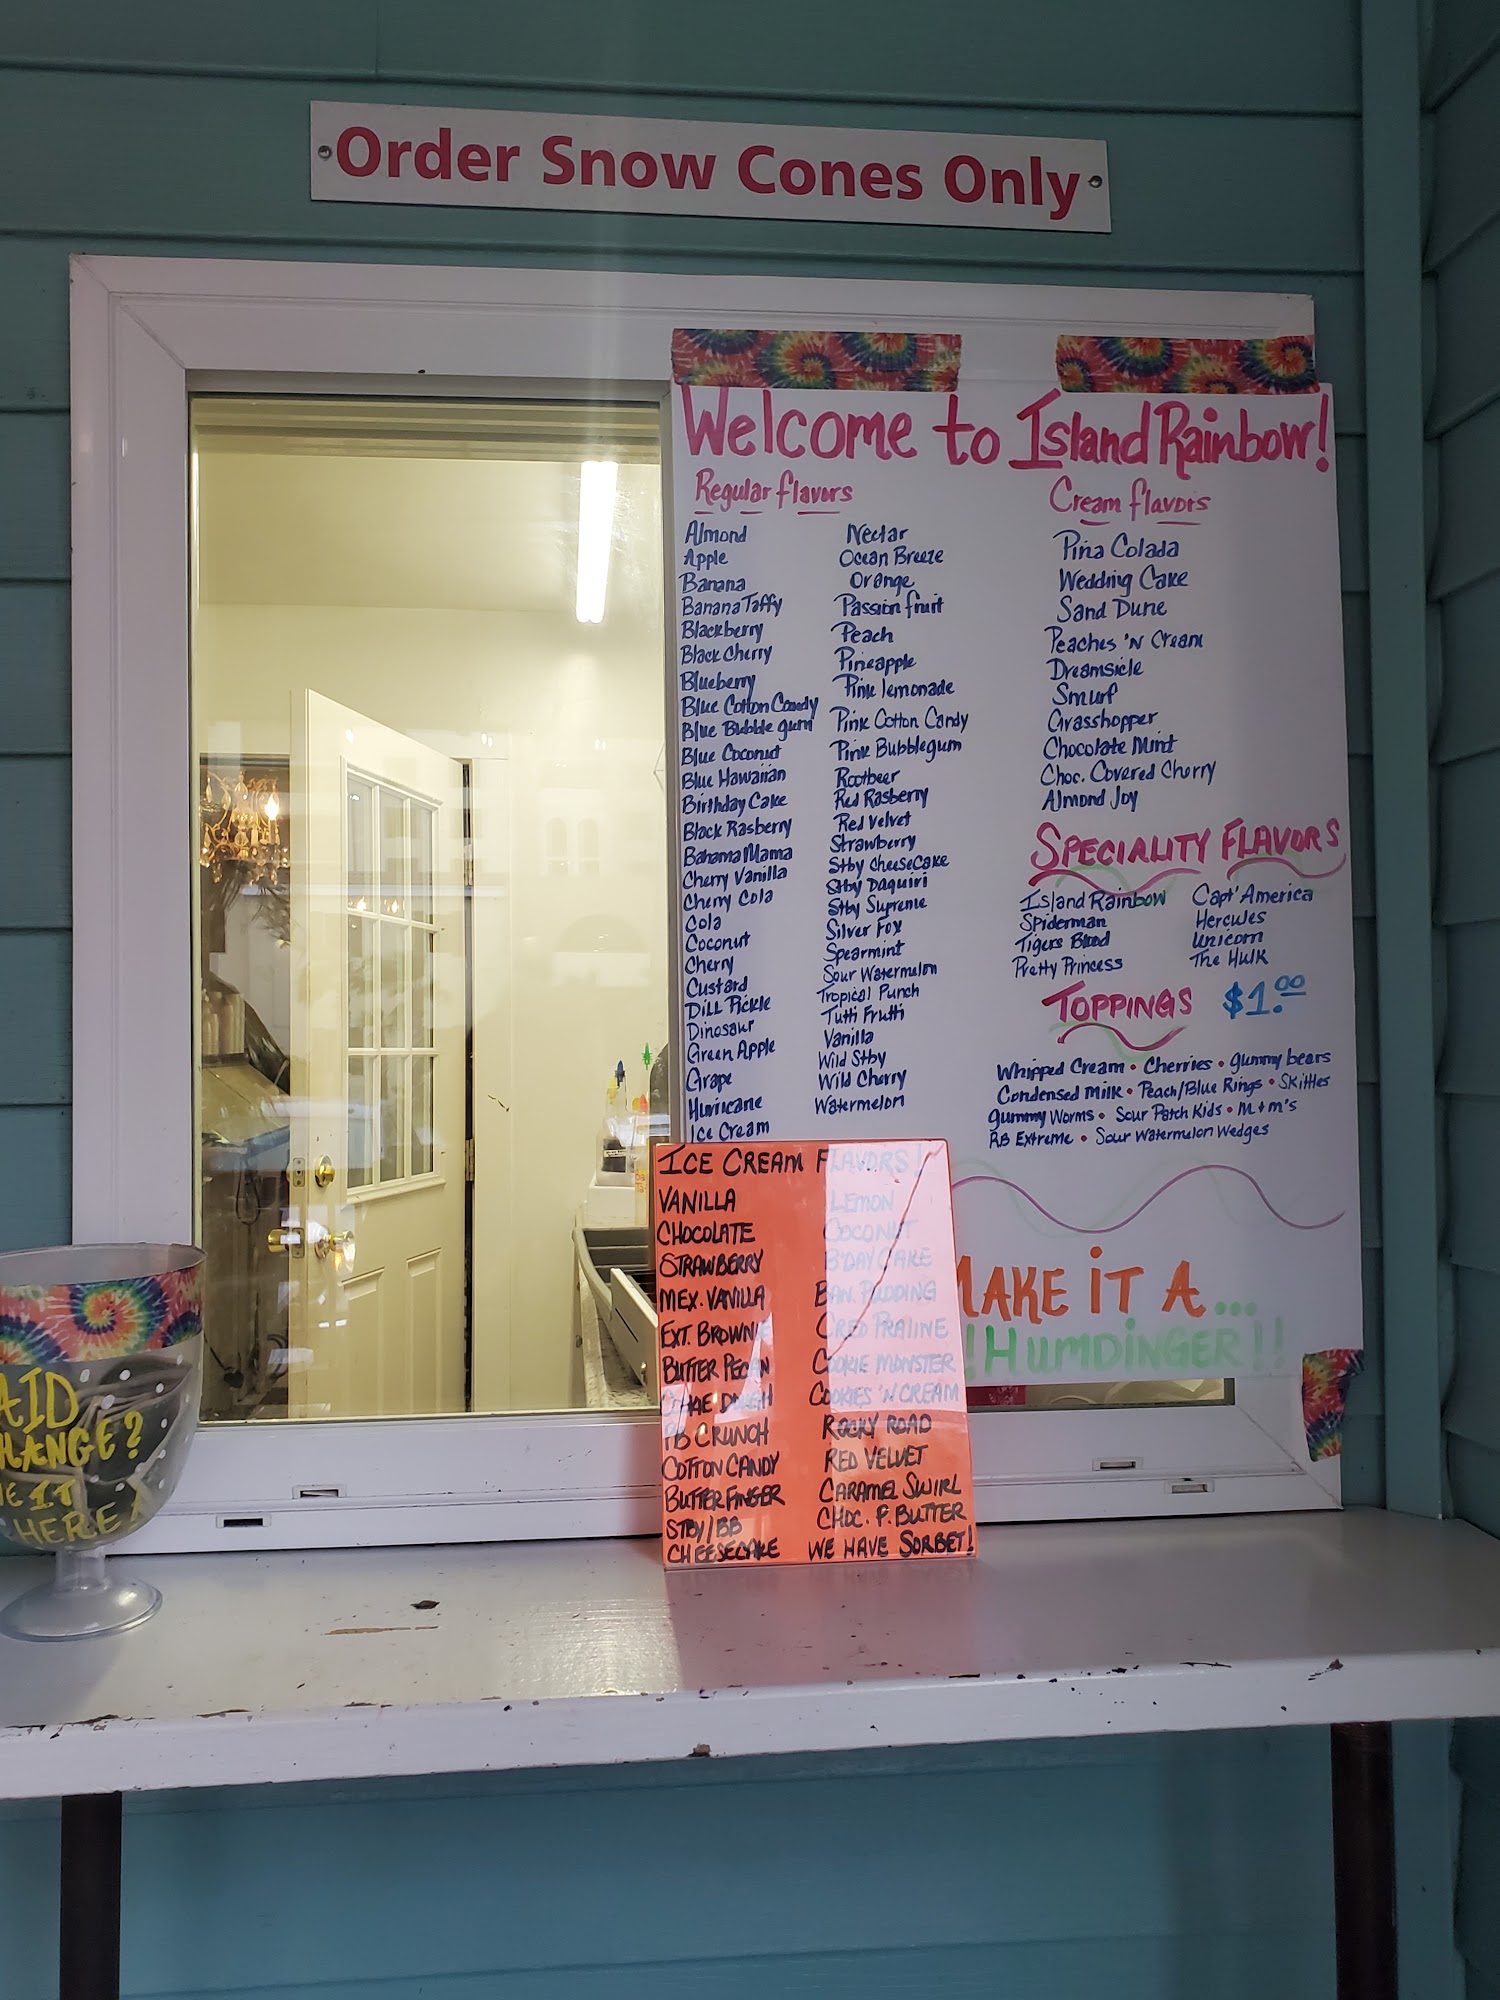 Order Snow Cones Only
Welcome to Island Rainbow!
Regular flavors
Almond
Apple
Banana
Banana Taffy
Blackberry
Black Cherry
Blueberry
Blue Cotton Candy
Blue Bubble gum
Blue Coconut
Blue Hawaiian
Birthday Cake
Black Rasberry
Bahama Mama
Cherry Vanilla
Cherry Cola
Cola
Coconut
Cherry
Custard
Dill Pickle
Dinosaur
Green Apple
Grape
Hurricane
Ice Cream
Nectar
Ocean Breeze
Orange
Passion fruit
Peach
Pineapple
Pink lemonade
Pink Cotton Candy
Pink Bubblegum
Rootbeer
Red Rasberry
Red Velvet
Strawberry
Stby Cheesecake
Stby Daquiri
Stby Supreme
Silver Fox
Spearmint
Sour Watermelon
Tropical Punch
Tutti Frutti
Vanilla
Wild Stby
Wild Cherry
Watermelon
Cream flavors
Piña Colada
Wedding Cake
Sand Dune
Peaches 'N Cream
Dreamsicle
Smurf
Grasshopper
Chocolate Mint
Choc. Covered Cherry
Almond Joy
SPECIALITY FLAVORS
Island Rainbow Capt' America
Spiderman Hercules
Tigers Blood Unicorn
Pretty Princess The Hulk
TOPPINGS $1.00
Whipped Cream • Cherries • gummy bears
Condensed Milk • Peach/Blue Rings • Skittles
gummy Worms • Sour Patch Kids • M+M's
RB Extreme • Sour Watermelon Wedges
MAKE IT A...
!HUMDINGER!!
ICE CREAM FLAVORS!
VANILLA
CHOCOLATE
STRAWBERRY
MEX. VANILLA
EXT. BROWNIE
BUTTER PECAN
DOUGH
PB CRUNCH
COTTON CANDY
BUTTERFINGER
STBY/BB
CHEESECAKE
LEMON
COCONUT
B'DAY CAKE
BAN. PUDDING
PRALINE
COOKIE MONSTER
COOKIES 'N CREAM
ROCKY ROAD
RED VELVET
CARAMEL SWIRL
CHOC. P. BUTTER
WE HAVE SORBET!
AID
HANGE?
IT
HERE